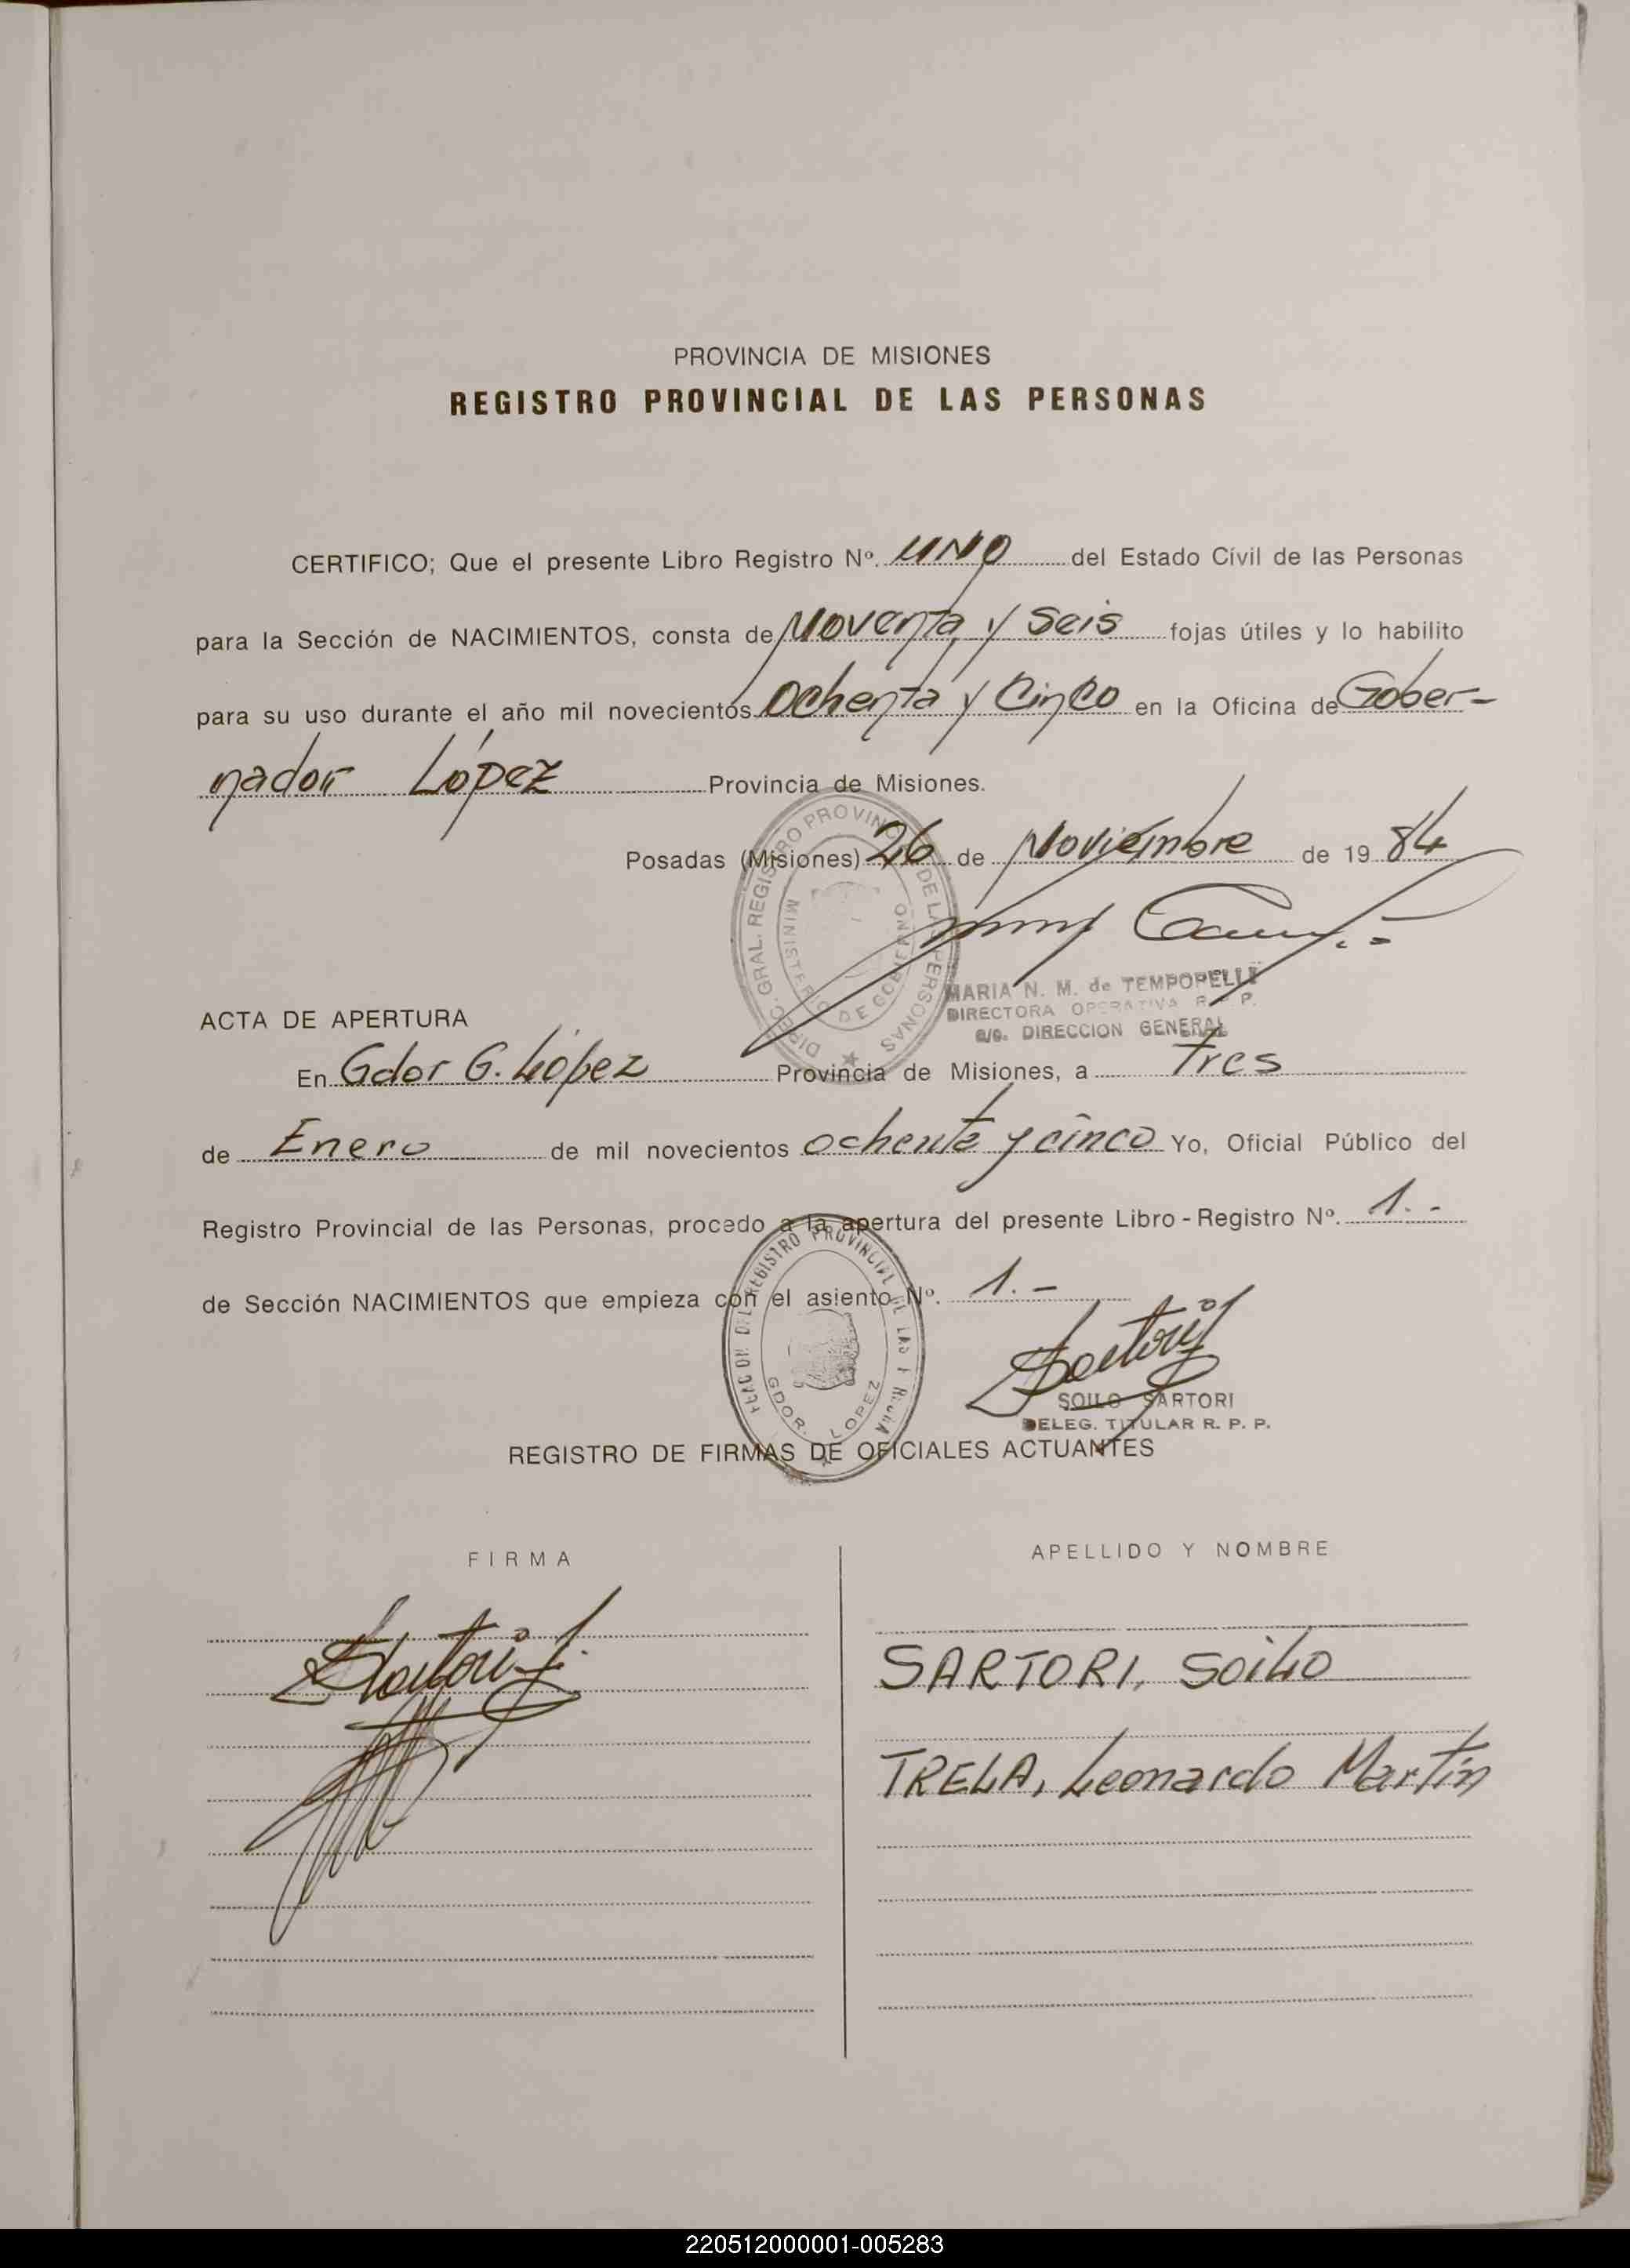 PROVINCIA DE MISIONES
REGISTRO PROVINCIAL DE LAS PERSONAS
CERTIFICO; Que el presente Libro Registro Nº. UNO del Estado Cívil de las Personas
para la Sección de NACIMIENTOS, consta de Noventa y Seis fojas útiles y lo habilito
para su uso durante el año mil novecientos Ochenta y Cinco en la Oficina de Gober-
nador López Provincia de Misiones.
Posadas (Misiones) 26 de Noviembre de 19 84
DIREC. GRAL. REGISTRO PROVINCIAL DE LAS PERSONAS
MINISTERIO DE GOBIERNO
MARIA N. M. de TEMPOPELLE
DIRECTORA OPERATIVA R. P. P.
a/c. DIRECCION GENERAL
ACTA DE APERTURA
En Gdor G. López Provincia de Misiones, a tres
de Enero de mil novecientos ochenta y cinco Yo, Oficial Público del
Registro Provincial de las Personas, procedo a la apertura del presente Libro - Registro Nº. 1.-
de Sección NACIMIENTOS que empieza con el asiento Nº. 1.-
REGISTRO PROVINCIAL DE LAS
GDOR. LOPEZ
Sartori
SOILO SARTORI
DELEG. TITULAR R. P. P.
REGISTRO DE FIRMAS DE OFICIALES ACTUANTES
FIRMA
APELLIDO Y NOMBRE
Sartori
SARTORI, Soilo
TRELA, Leonardo Martín
220512000001-005283